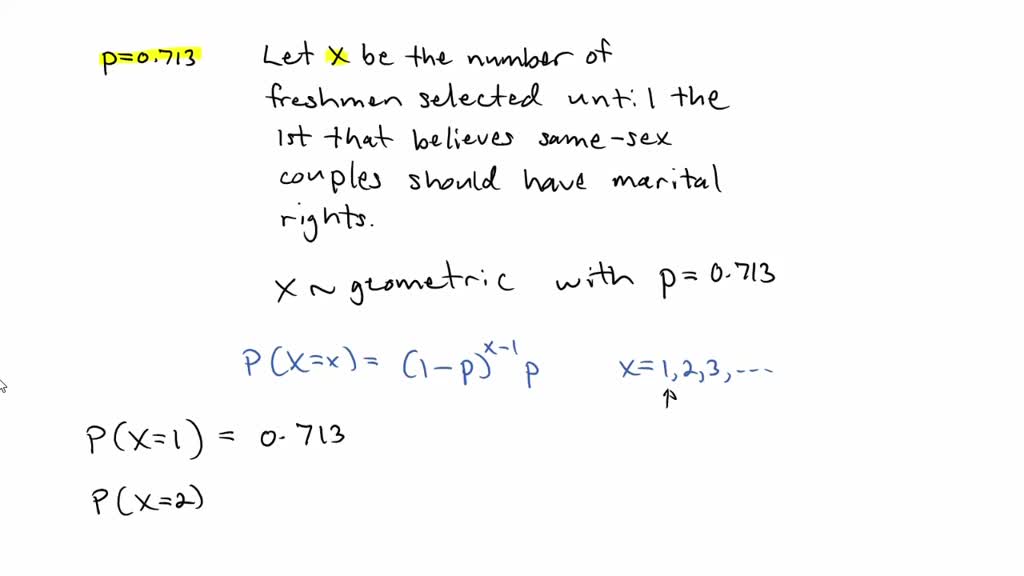 p=0.713
Let X be the number of
freshmen selected until the
1st that believes same-sex
couples should have marital
rights.
X ~ geometric with p=0.713
P(X=x) = (1-p)^{x-1} p x=1,2,3,...
↑
P(X=1) = 0.713
P(X=2)